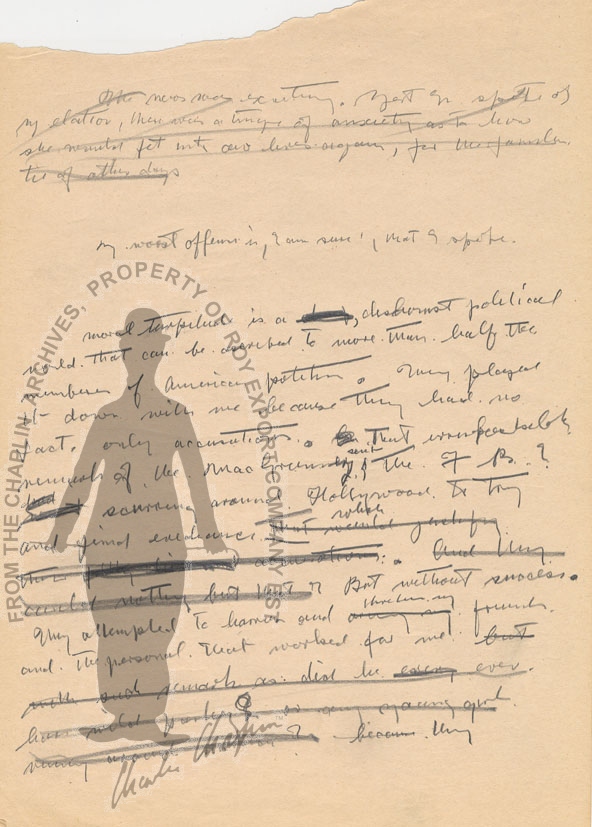 The news was exciting. Yet in spite of
my elation, there was a tinge of anxiety as to how
she would fit into our lives again, for the
of other days
my worst offense is, I am sure, that I spoke.
moral turpitude is a dishonest political
word. that can be ascribed to more than half the
number of American politicians. They played
it down with me because they had no
facts only accusations. that
remark of the MacGranery sent the F B I
scurring around Hollywood to try
and find evidence. which that would justify
accusations. And they
could nothing but But without success.
They attempted to harass and threaten my friends
and the personal that worked for me. but
such remark as: did he ever
have wild parties or any young girl
running around because they
FROM THE CHAPLIN ARCHIVES, PROPERTY OF ROY EXPORT COMPANY EST
Charlie Chaplin